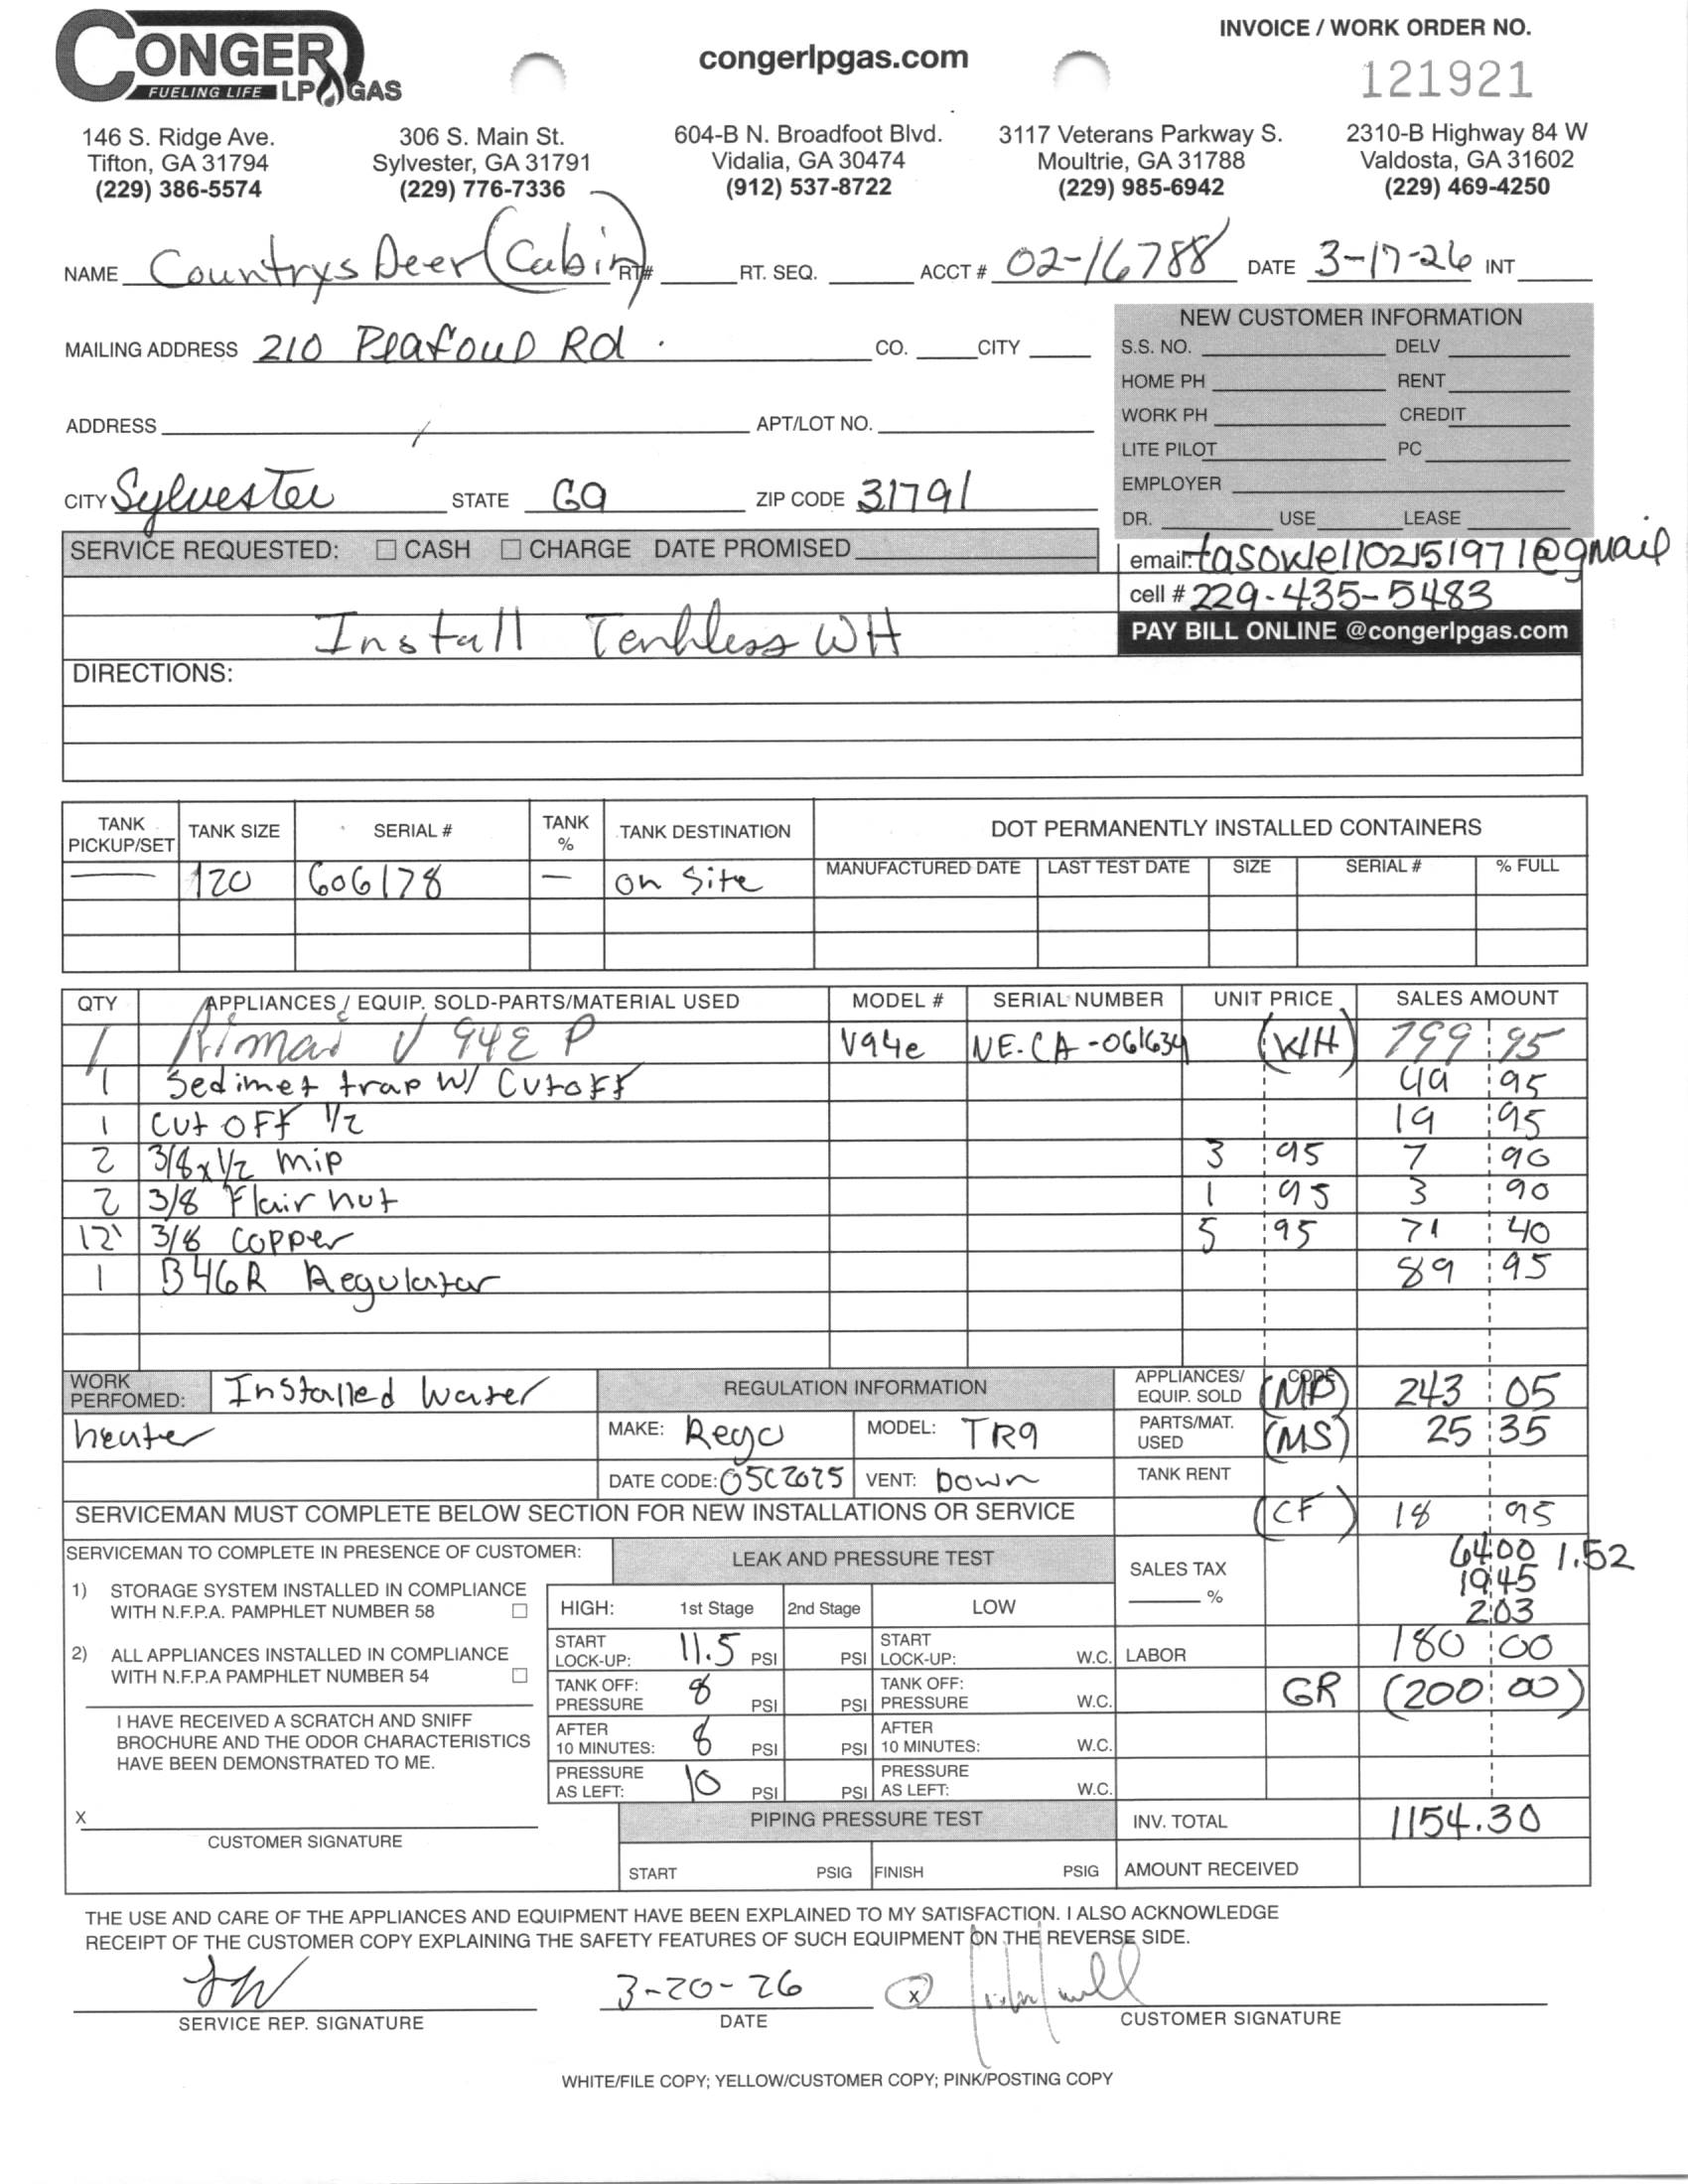 CONGER
FUELING LIFE LP GAS
congerlpgas.com
INVOICE / WORK ORDER NO.
121921
146 S. Ridge Ave.
Tifton, GA 31794
(229) 386-5574
306 S. Main St.
Sylvester, GA 31791
(229) 776-7336
604-B N. Broadfoot Blvd.
Vidalia, GA 30474
(912) 537-8722
3117 Veterans Parkway S.
Moultrie, GA 31788
(229) 985-6942
2310-B Highway 84 W
Valdosta, GA 31602
(229) 469-4250
NAME Countrys Deer (Cabin) RT# RT. SEQ. ACCT # 02-16788 DATE 3-17-26 INT
MAILING ADDRESS 210 Rd CO. CITY
ADDRESS APT/LOT NO.
CITY Sylvester STATE Ga ZIP CODE 31791
NEW CUSTOMER INFORMATION
S.S. NO. DELV
HOME PH RENT
WORK PH CREDIT
LITE PILOT PC
EMPLOYER
DR. USE LEASE
SERVICE REQUESTED: CASH CHARGE DATE PROMISED
email: tasowell02151971@gmail
cell # 229-435-5483
PAY BILL ONLINE @congerlpgas.com
Install Tenkless WH
DIRECTIONS:
TANK PICKUP/SET TANK SIZE SERIAL # TANK % TANK DESTINATION DOT PERMANENTLY INSTALLED CONTAINERS
MANUFACTURED DATE LAST TEST DATE SIZE SERIAL # % FULL
— 120 606178 — on Site
QTY APPLIANCES / EQUIP. SOLD-PARTS/MATERIAL USED MODEL # SERIAL NUMBER UNIT PRICE SALES AMOUNT
1 Rinnai V 94E P V94e NE.CA-061634 (WH) 799 95
1 Sedimet trap W/ Cutoff 49 95
1 Cut OFF 1/2 19 95
2 3/8 x 1/2 mip 3 95 7 90
2 3/8 Flair nut 1 95 3 90
12' 3/8 Copper 5 95 71 40
1 B46R Regulator 89 95
WORK PERFOMED: Installed Water
heater
REGULATION INFORMATION
MAKE: Rego MODEL: TR9
DATE CODE: 05C2025 VENT: Down
CODE
APPLIANCES/ EQUIP. SOLD (MP) 243 05
PARTS/MAT. USED (MS) 25 35
TANK RENT
(CF) 18 95
SERVICEMAN MUST COMPLETE BELOW SECTION FOR NEW INSTALLATIONS OR SERVICE
SERVICEMAN TO COMPLETE IN PRESENCE OF CUSTOMER:
1) STORAGE SYSTEM INSTALLED IN COMPLIANCE
WITH N.F.P.A. PAMPHLET NUMBER 58
2) ALL APPLIANCES INSTALLED IN COMPLIANCE
WITH N.F.P.A PAMPHLET NUMBER 54
I HAVE RECEIVED A SCRATCH AND SNIFF
BROCHURE AND THE ODOR CHARACTERISTICS
HAVE BEEN DEMONSTRATED TO ME.
X
CUSTOMER SIGNATURE
LEAK AND PRESSURE TEST
HIGH: 1st Stage 2nd Stage LOW
START LOCK-UP: 11.5 PSI PSI START LOCK-UP: W.C.
TANK OFF: PRESSURE 8 PSI PSI TANK OFF: PRESSURE W.C.
AFTER 10 MINUTES: 8 PSI PSI AFTER 10 MINUTES: W.C.
PRESSURE AS LEFT: 10 PSI PSI PRESSURE AS LEFT: W.C.
PIPING PRESSURE TEST
START PSIG FINISH PSIG
SALES TAX
%
64.00 1.52
19.45
2.03
LABOR 180 00
GR (200 00)
INV. TOTAL 1154.30
AMOUNT RECEIVED
THE USE AND CARE OF THE APPLIANCES AND EQUIPMENT HAVE BEEN EXPLAINED TO MY SATISFACTION. I ALSO ACKNOWLEDGE
RECEIPT OF THE CUSTOMER COPY EXPLAINING THE SAFETY FEATURES OF SUCH EQUIPMENT ON THE REVERSE SIDE.
3-20-26 X
SERVICE REP. SIGNATURE DATE CUSTOMER SIGNATURE
WHITE/FILE COPY; YELLOW/CUSTOMER COPY; PINK/POSTING COPY